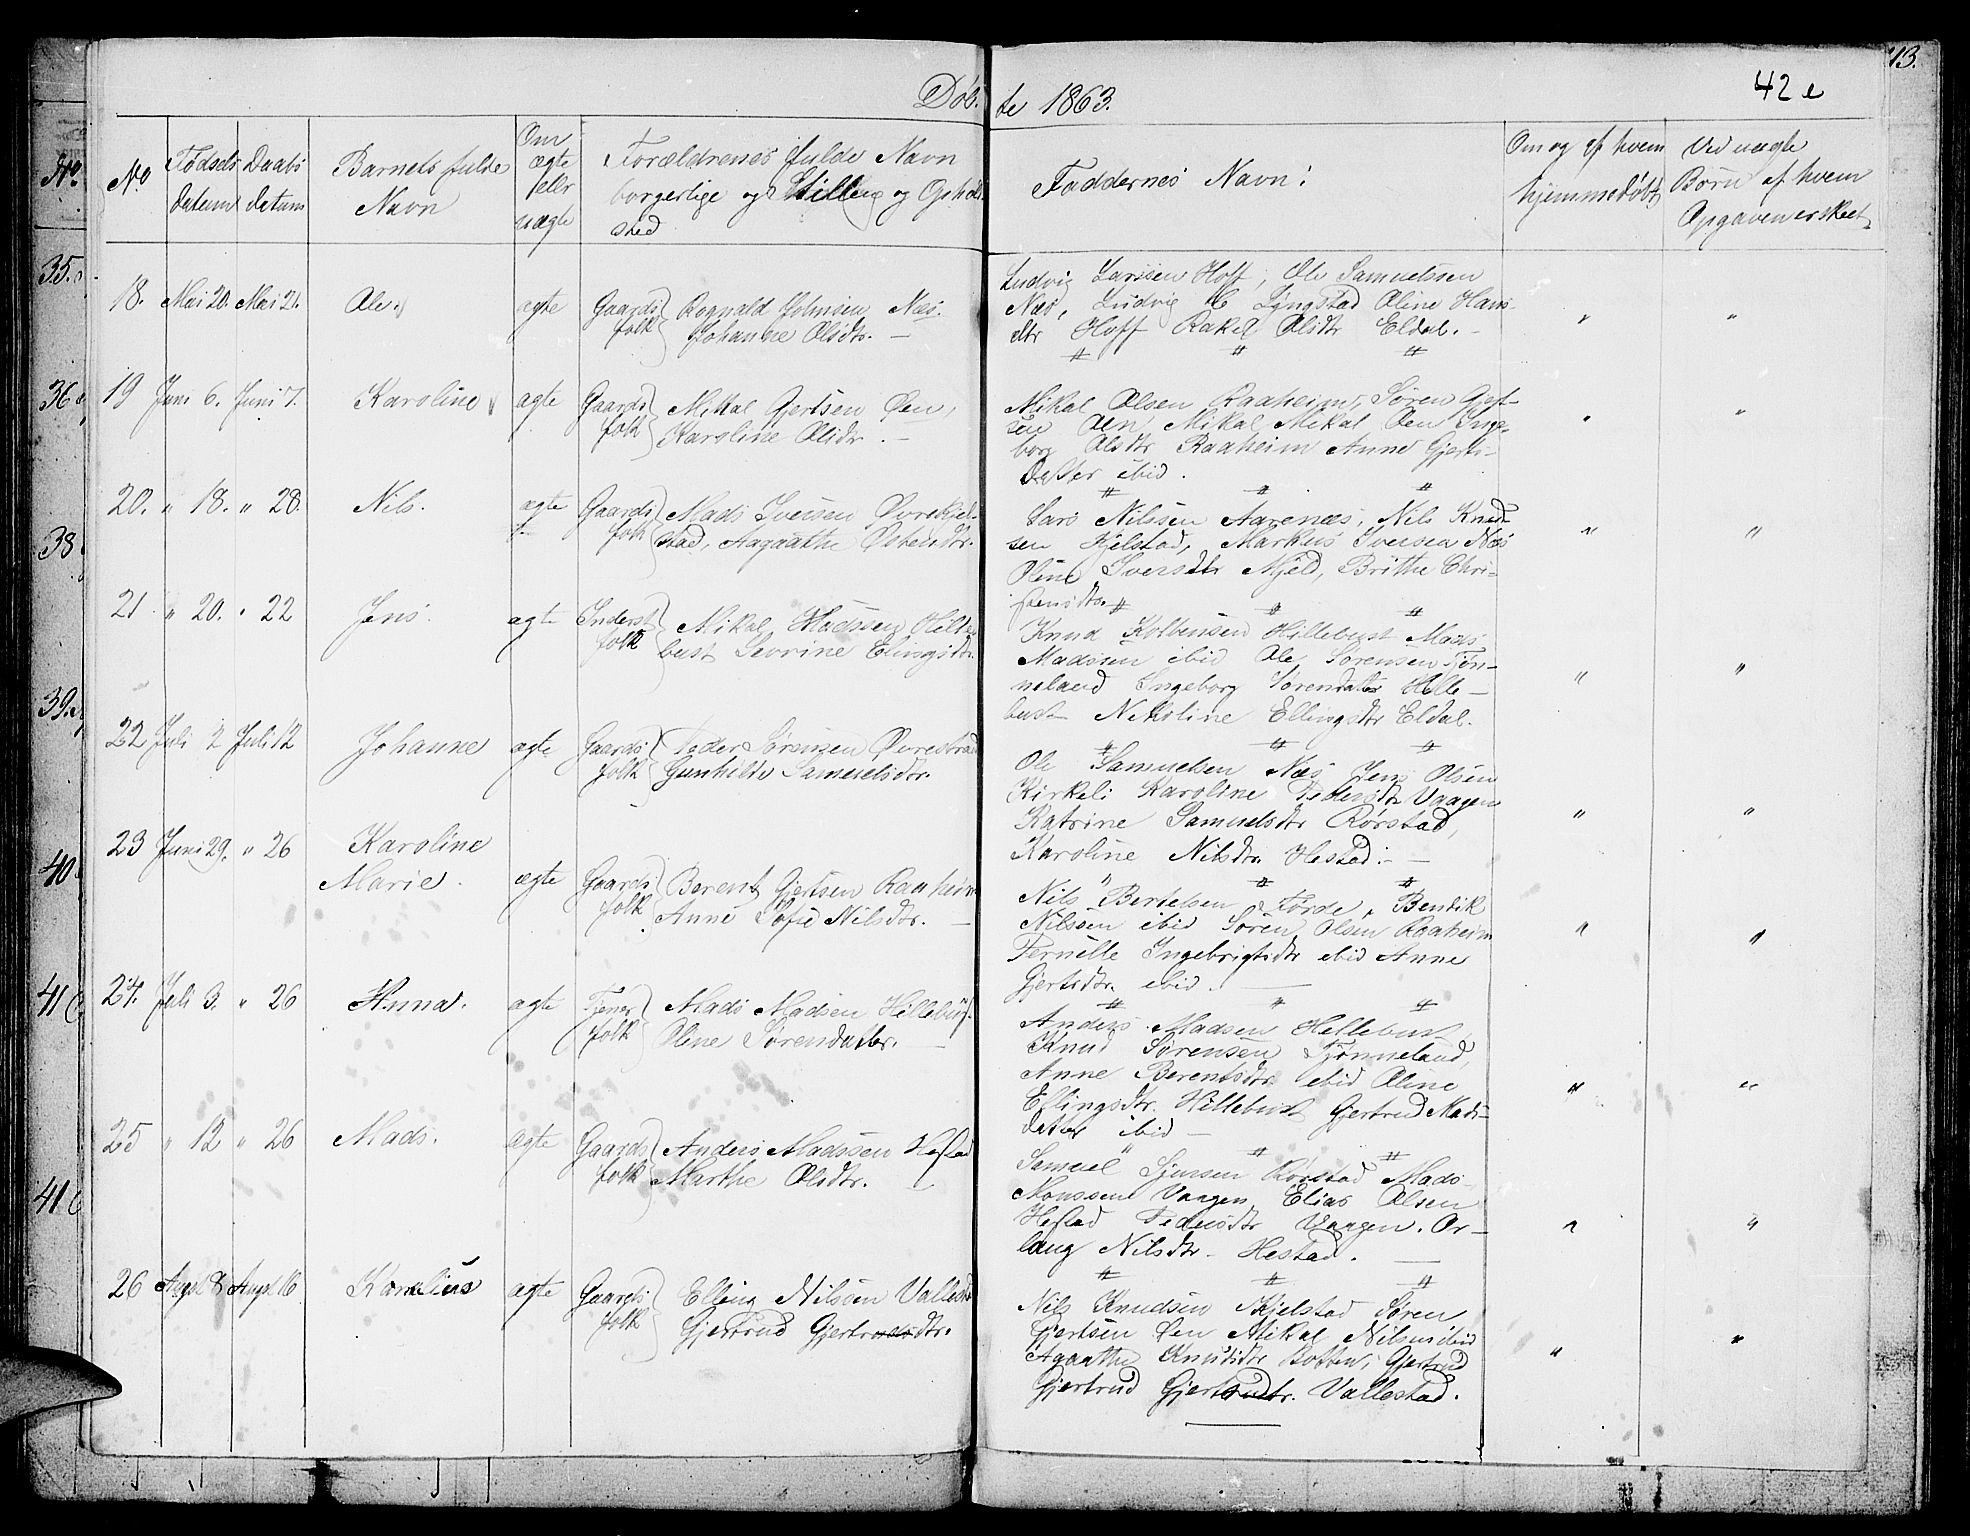 13.
42 e
Døb-te 1863.
No
No
Fødsels
datum
Daabs
datum
Barnets fulde
Navn
Om
ægte
eller
uægte
Forældrenes fulde Navn
borgerlige og Stilling og Ophol
sted
Faddernes Navn:
Om og af hvem
hjemmedøbt
Ved uægte
Børn af hvem
Opgaven er skeet
35.
18. Mai 20. Mai 21. Ole. ægte Gaards folk Rognald Johnsen Næs.
Johanne Olsdtr. —
Ludvig Larssen Hoff, Ole Samuelssen
Næs, Ludvig C Lyngstad Oline Hans
dtr Hoff Rakel Olsdtr Eldal. -
36
19 Juni 6. Juni 7. Karoline ægte Gaards folk Mikal Gjertsen Øen,
Karoline Olsdtr. —
Mikal Olsen Raaheim, Søren Gjert-
sen Øen Mikal Mikal Øen Inge-
borg Olsdtr Raaheim Anne Gjerts-
datter ibid.
20. " 18. " 28. Nils. ægte Gaards folk Mads Iversen Øvrekjel-
stad, Aagaathe Østensdtr.
Lars Nilssen Aarenæs, Nils Knud-
sen Kjelstad, Markus Iversen Næs
Oline Iversdtr Mjeld, Brithe Chri-
stensdtr.
38
21 " 20. " 22 Jens. ægte Inderst folk Mikal Madssen Hille
bust Sevrine Elingsdtr.
Knud Kolbensen Hillebust Mads
Madssen ibid Ole Sørensen Tjøn-
neland Ingeborg Sørendatter Hille-
bust Nikoline Ellingsdtr Eldal.
39.
22 Juli 2 Juli 12 Johanne ægte Gaards folk Peder Sørensen Øvrestrad
Gunhilde Samuelsdtr.
Ole Samuelsen Næs Jens Olsen
Kirkeli Karoline Pedersdtr Vaagen
Katrine Samuelsdtr Rørstad,
Karoline Nilsdtr. Hestad. —
40
23 Juni 29. " 26 Karoline
Marie. ægte Gaards folk Berent Gjertsen Raaheim
Anne Sofie Nilsdtr. —
Nils Bertelsen Førde, Bendik
Nilssen ibid Søren Olsen Raaheim
Pernille Ingebrigtsdtr ibid Anne
Gjertsdtr. ibid. —
41
24. Juli 3. " 26 Anna. ægte Tjener folk Mads Madsen Hillebust
Oline Sørendatter. —
Anders Madsen Hillebust
Knud Sørensen Tjønneland,
Anne Berentsdtr. ibid Oline
Ellingsdtr. Hillebust Gjertrud Mads-
datter ibid —
25 " 12 " 26 Mads. ægte Gaards folk Anders Madssen Hestad
Marthe Olsdtr.
Samuel Sjursen Rørstad Mads
Monssen Vaagen, Elias Olsen
Hestad Pedersdtr Vaagen. Or-
laug Nilsdtr. Hestad. —
41
26 Augst 8 Augst 16 Kornelius ægte Gaards folk Elling Nilssen Vallesta
Gjertrud Gjertrudsdtr.
Nils Knudsen Kjelstad Søren
Gjertsen Øen Mikal Nilsen ibid
Agaathe Knudsdtr Botten, Gjertrud
Gjertrud Gjertsdtr. Vallestad.